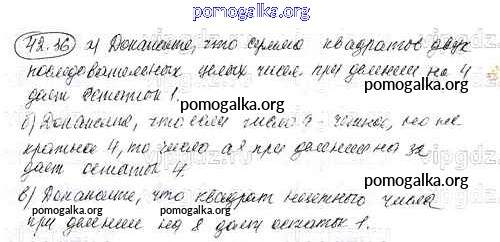 pomogalka.org
42.36 а) Докажите, что сумма квадратов двух
последовательных целых чисел при делении на 4
дает остаток 1.
pomogalka.org
б) Докажите, что если число a - четное, но не
кратное 4, то число a² при делении на 32
дает остаток 4.
pomogalka.org
в) Докажите, что квадрат нечетного числа
при делении на 8 дает остаток 1.
pomogalka.org